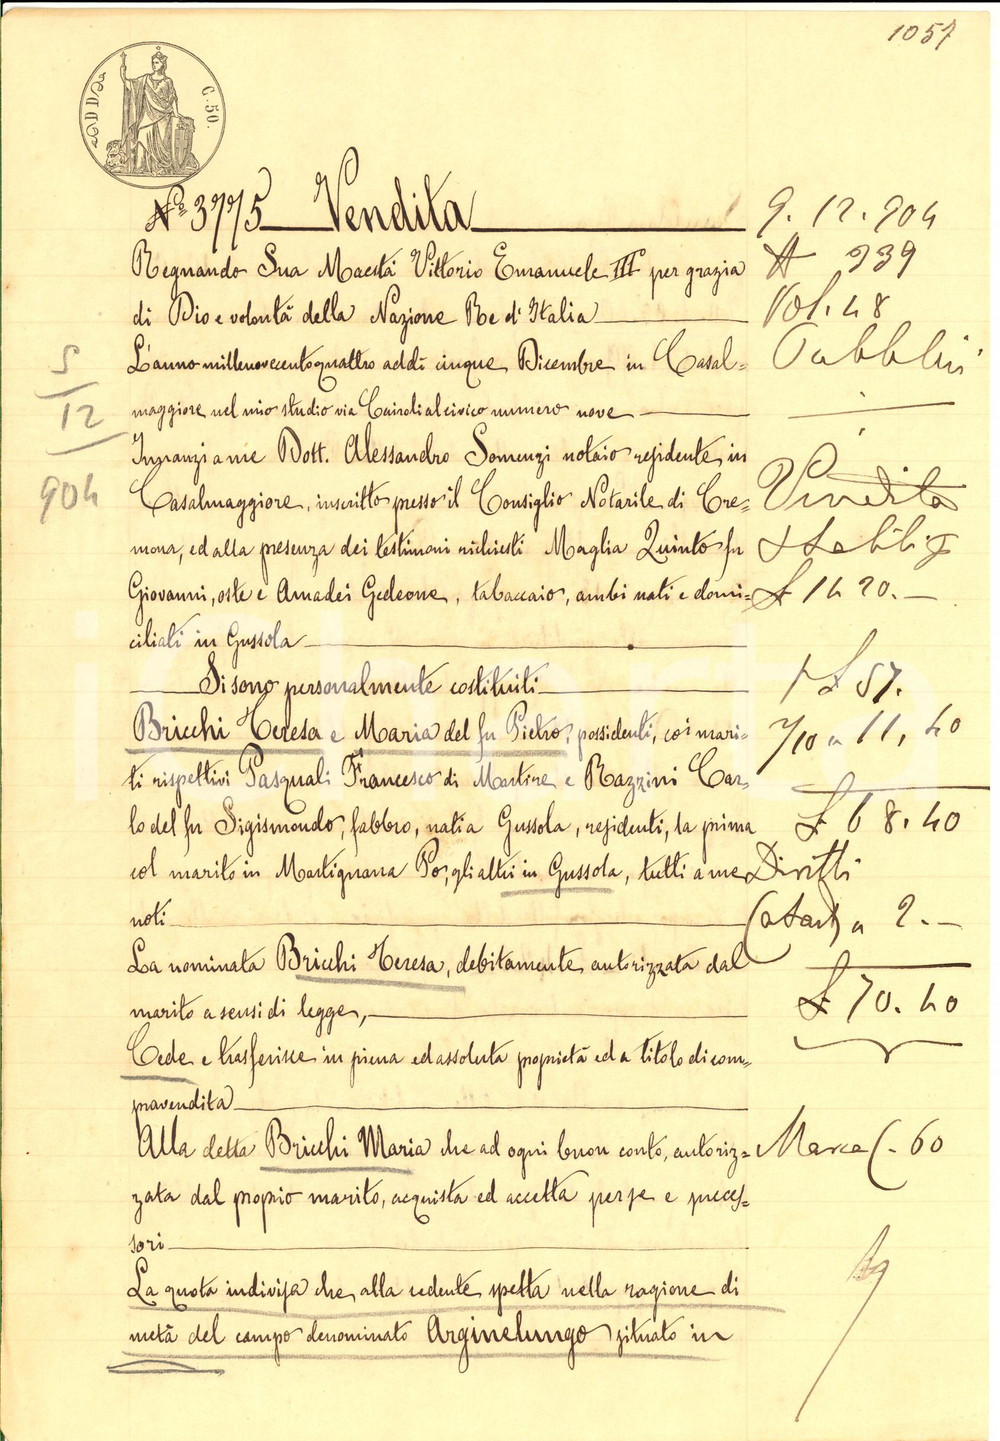 1057
C. 50.
N.º 3775 Vendita
Regnando Sua Maestà Vittorio Emanuele III per grazia
di Dio e volontà della Nazione Re d'Italia
L'anno millenovecentoquattro addì cinque Dicembre in Casal=
maggiore nel mio studio via Cairoli al civico numero nove
Innanzi a me Dott. Alessandro Somenzi notaio residente in
Casalmaggiore, inscritto presso il Consiglio Notarile di Cre=
mona, ed alla presenza dei testimoni richiesti Maglia Quinto fu
Giovanni, oste e Amadei Gedeone, tabaccaio, ambi nati e domi=
ciliati in Gussola
Si sono personalmente costituiti
Bricchi Teresa e Maria del fu Pietro, possidenti, coi mari=
ti rispettivi Pasquali Francesco di Martire e Razzini Car=
lo del fu Sigismondo, fabbro, nati a Gussola, residenti, la prima
col marito in Martignana Po, gli altri in Gussola, tutti a me
noti
La nominata Bricchi Teresa, debitamente autorizzata dal
marito a sensi di legge,
Cede e trasferisce in piena ed assoluta proprietà ed a titolo di com=
pravendita
Alla detta Bricchi Maria che ad ogni buon conto, autoriz=
zata dal proprio marito, acquista ed accetta per se e succes=
sori
La quota indivisa che alla cedente spetta nella ragione di
metà del campo denominato Arginelungo situato in
5
12
904
9. 12. 904
939
Vol. 48
Vendita
£ 1420.-
£ 57.
7/10 a 11,40
£ 68.40
Diritti
Catast) a 2.-
£ 70.40
Marca C. 60